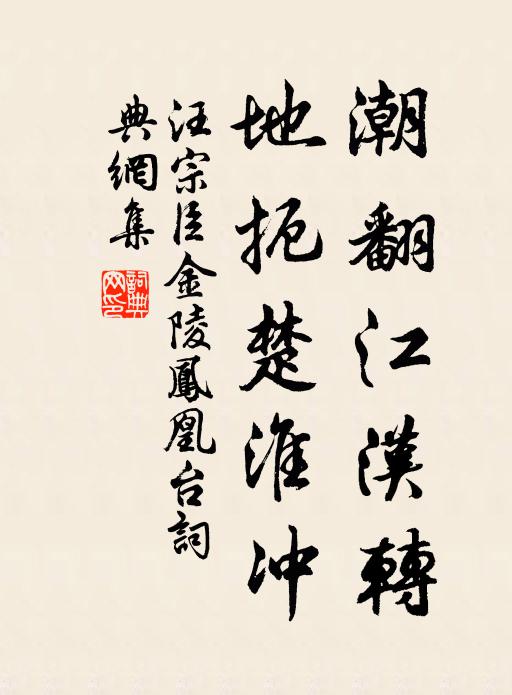 潮翻江漢轉
地扼楚淮冲
汪宗臣金陵鳳凰台詞
典網集
詞典網印